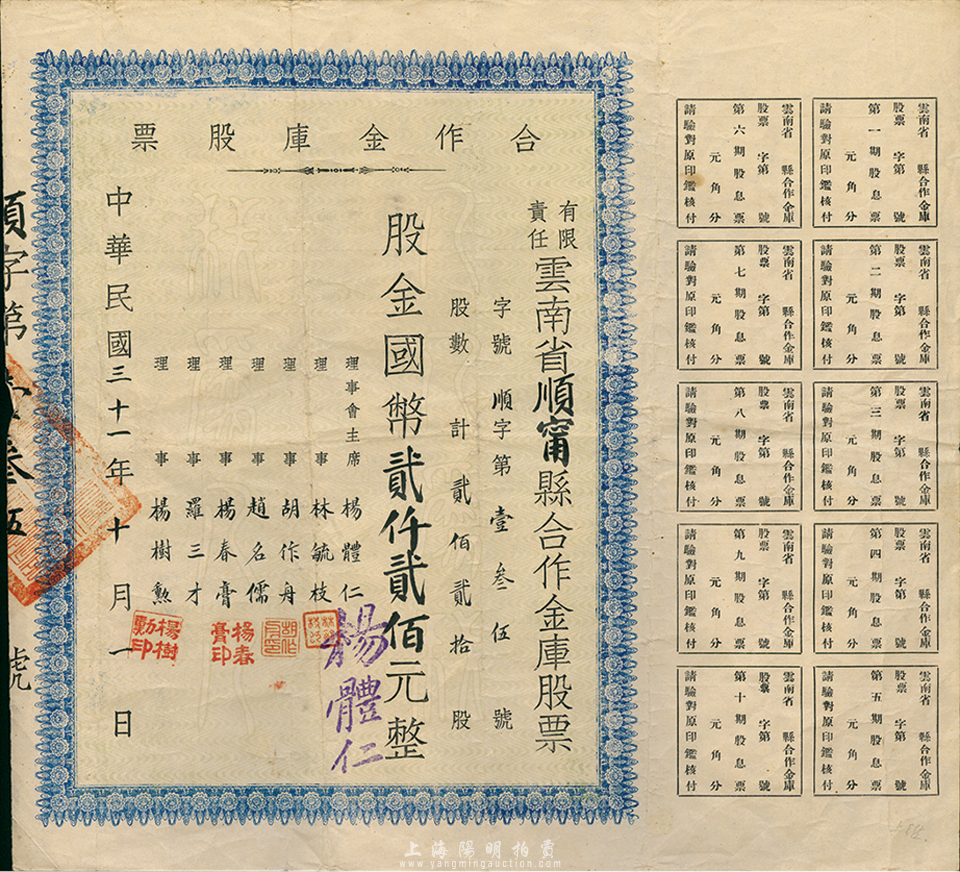 合作金庫股票
有限責任雲南省順甯縣合作金庫股票
字號 順字第壹叁伍號
股數計貳佰貳拾股
股金國幣貳仟貳佰元整
理事會主席 楊體仁
理事 林毓枝
理事 胡作舟
理事 趙名儒
理事 楊春膏
理事 羅三才
理事 楊樹勲
楊體仁
楊春膏印
楊樹勲印
中華民國三十一年十月一日
順字第壹叁伍號
雲南省 縣合作金庫
股票 字第 號
第一期股息票
元角分
請驗對原印鑑核付
雲南省 縣合作金庫
股票 字第 號
第二期股息票
元角分
請驗對原印鑑核付
雲南省 縣合作金庫
股票 字第 號
第三期股息票
元角分
請驗對原印鑑核付
雲南省 縣合作金庫
股票 字第 號
第四期股息票
元角分
請驗對原印鑑核付
雲南省 縣合作金庫
股票 字第 號
第五期股息票
元角分
請驗對原印鑑核付
雲南省 縣合作金庫
股票 字第 號
第六期股息票
元角分
請驗對原印鑑核付
雲南省 縣合作金庫
股票 字第 號
第七期股息票
元角分
請驗對原印鑑核付
雲南省 縣合作金庫
股票 字第 號
第八期股息票
元角分
請驗對原印鑑核付
雲南省 縣合作金庫
股票 字第 號
第九期股息票
元角分
請驗對原印鑑核付
雲南省 縣合作金庫
股票 字第 號
第十期股息票
元角分
請驗對原印鑑核付
上海陽明拍賣
www.yangmingauction.com